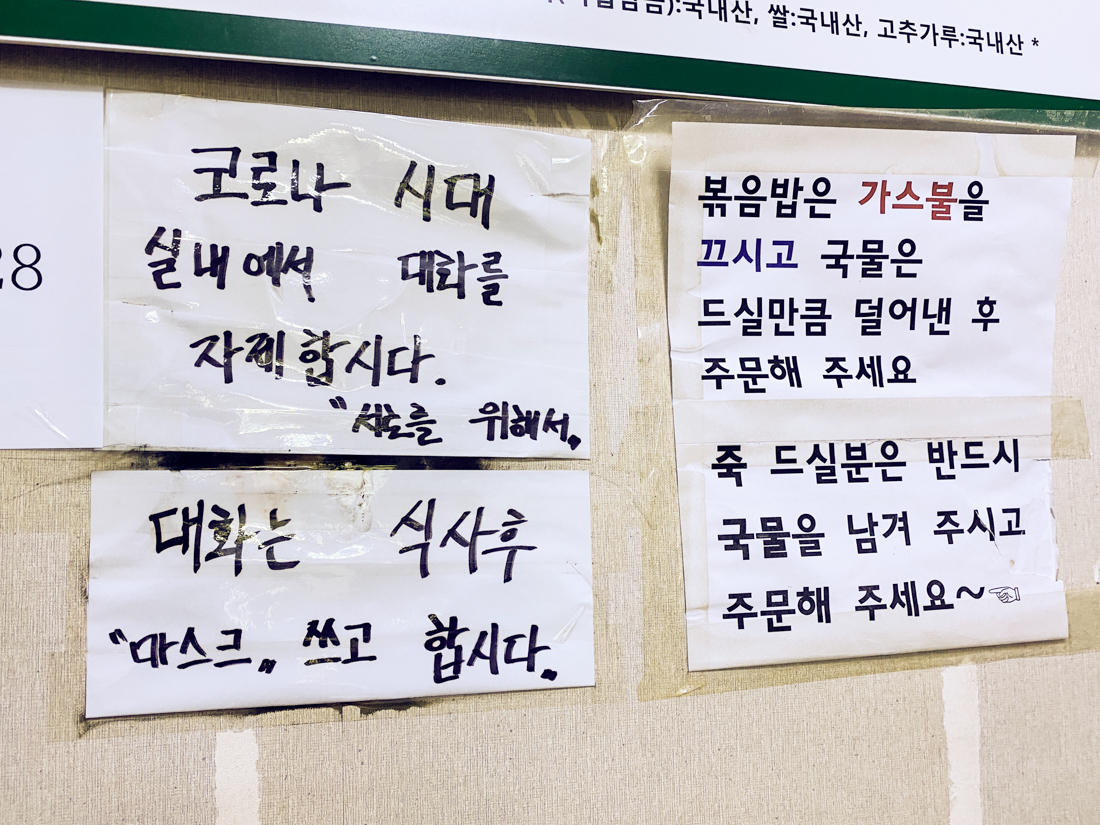 :국내산, 쌀:국내산, 고추가루:국내산 *
28
코로나 시대
실내에서 대화를
자제합시다.
"서로를 위해서„
대화는 식사후
"마스크„ 쓰고 합시다.„
볶음밥은 가스불을
끄시고 국물은
드실만큼 덜어낸 후
주문해 주세요
죽 드실분은 반드시
국물을 남겨 주시고
주문해 주세요~☜